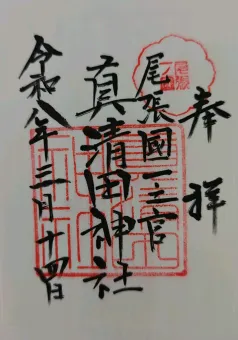 奉拝
尾張國一之宮
真清田神社
令和八年三月十四日